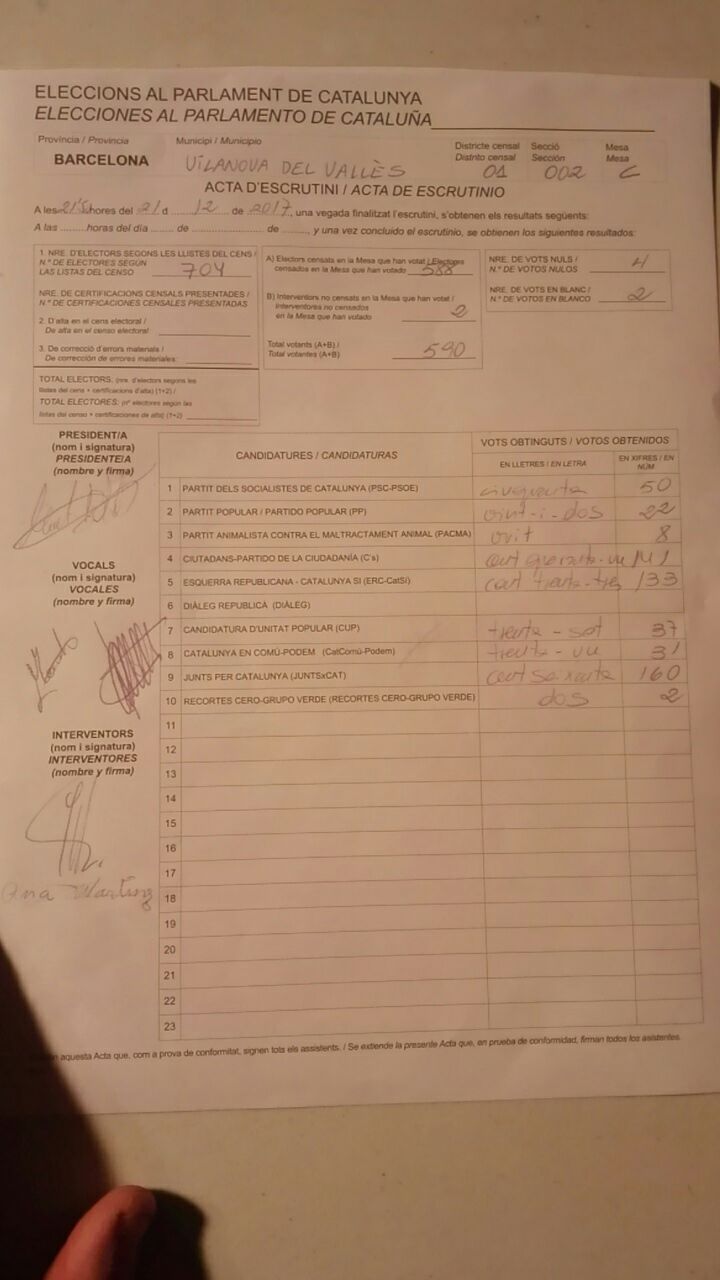 ELECCIONS AL PARLAMENT DE CATALUNYA
ELECCIONES AL PARLAMENTO DE CATALUÑA
Província / Provincia Municipi / Municipio Districte censal Secció Mesa
Distrito censal Sección Mesa
BARCELONA VILANOVA DEL VALLÈS 01 002 C
ACTA D'ESCRUTINI / ACTA DE ESCRUTINIO
A les hores del 21 d 12 de 2017, una vegada finalitzat l'escrutini, s'obtenen els resultats següents:
A las ........ horas del día ........ de ........ de ........, y una vez concluido el escrutinio, se obtienen los siguientes resultados:
1. NRE. D'ELECTORS SEGONS LES LLISTES DEL CENS /
N.º DE ELECTORES SEGÚN
LAS LISTAS DEL CENSO 704
NRE. DE CERTIFICACIONS CENSALS PRESENTADES /
N.º DE CERTIFICACIONES CENSALES PRESENTADAS
2. D'alta en el cens electoral /
De alta en el censo electoral
3. De correcció d'errors materials /
De corrección de errores materiales:
TOTAL ELECTORS: (nre. d'electors segons les
llistes del cens + certificacions d'alta) (1+2) /
TOTAL ELECTORES: (nº electores según las
listas del censo + certificaciones de alta) (1+2)
A) Electors censats en la Mesa que han votat / Electores
censados en la Mesa que han votado 588
B) Interventors no censats en la Mesa que han votat /
Interventores no censados
en la Mesa que han votado 2
Total votants (A+B) /
Total votantes (A+B) 590
NRE. DE VOTS NULS /
N.º DE VOTOS NULOS 4
NRE. DE VOTS EN BLANC /
N.º DE VOTOS EN BLANCO 2
PRESIDENT/A
(nom i signatura)
PRESIDENTE/A
(nombre y firma)
VOCALS
(nom i signatura)
VOCALES
(nombre y firma)
INTERVENTORS
(nom i signatura)
INTERVENTORES
(nombre y firma)
Ana
CANDIDATURES / CANDIDATURAS VOTS OBTINGUTS / VOTOS OBTENIDOS
EN LLETRES / EN LETRA EN XIFRES / EN NÚM
1 PARTIT DELS SOCIALISTES DE CATALUNYA (PSC-PSOE) cinquanta 50
2 PARTIT POPULAR / PARTIDO POPULAR (PP) vint-i-dos 22
3 PARTIT ANIMALISTA CONTRA EL MALTRACTAMENT ANIMAL (PACMA) vuit 8
4 CIUTADANS-PARTIDO DE LA CIUDADANÍA (C's) cent quaranta-un 141
5 ESQUERRA REPUBLICANA - CATALUNYA SÍ (ERC-CatSí) cent trenta-tres 133
6 DIÀLEG REPUBLICÀ (DIÀLEG)
7 CANDIDATURA D'UNITAT POPULAR (CUP) trenta-set 37
8 CATALUNYA EN COMÚ-PODEM (CatComú-Podem) trenta-un 31
9 JUNTS PER CATALUNYA (JUNTSxCAT) cent seixanta 160
10 RECORTES CERO-GRUPO VERDE (RECORTES CERO-GRUPO VERDE) dos 2
11
12
13
14
15
16
17
18
19
20
21
22
23
aquesta Acta que, com a prova de conformitat, signen tots els assistents. / Se extiende la presente Acta que, en prueba de conformidad, firman todos los asistentes.